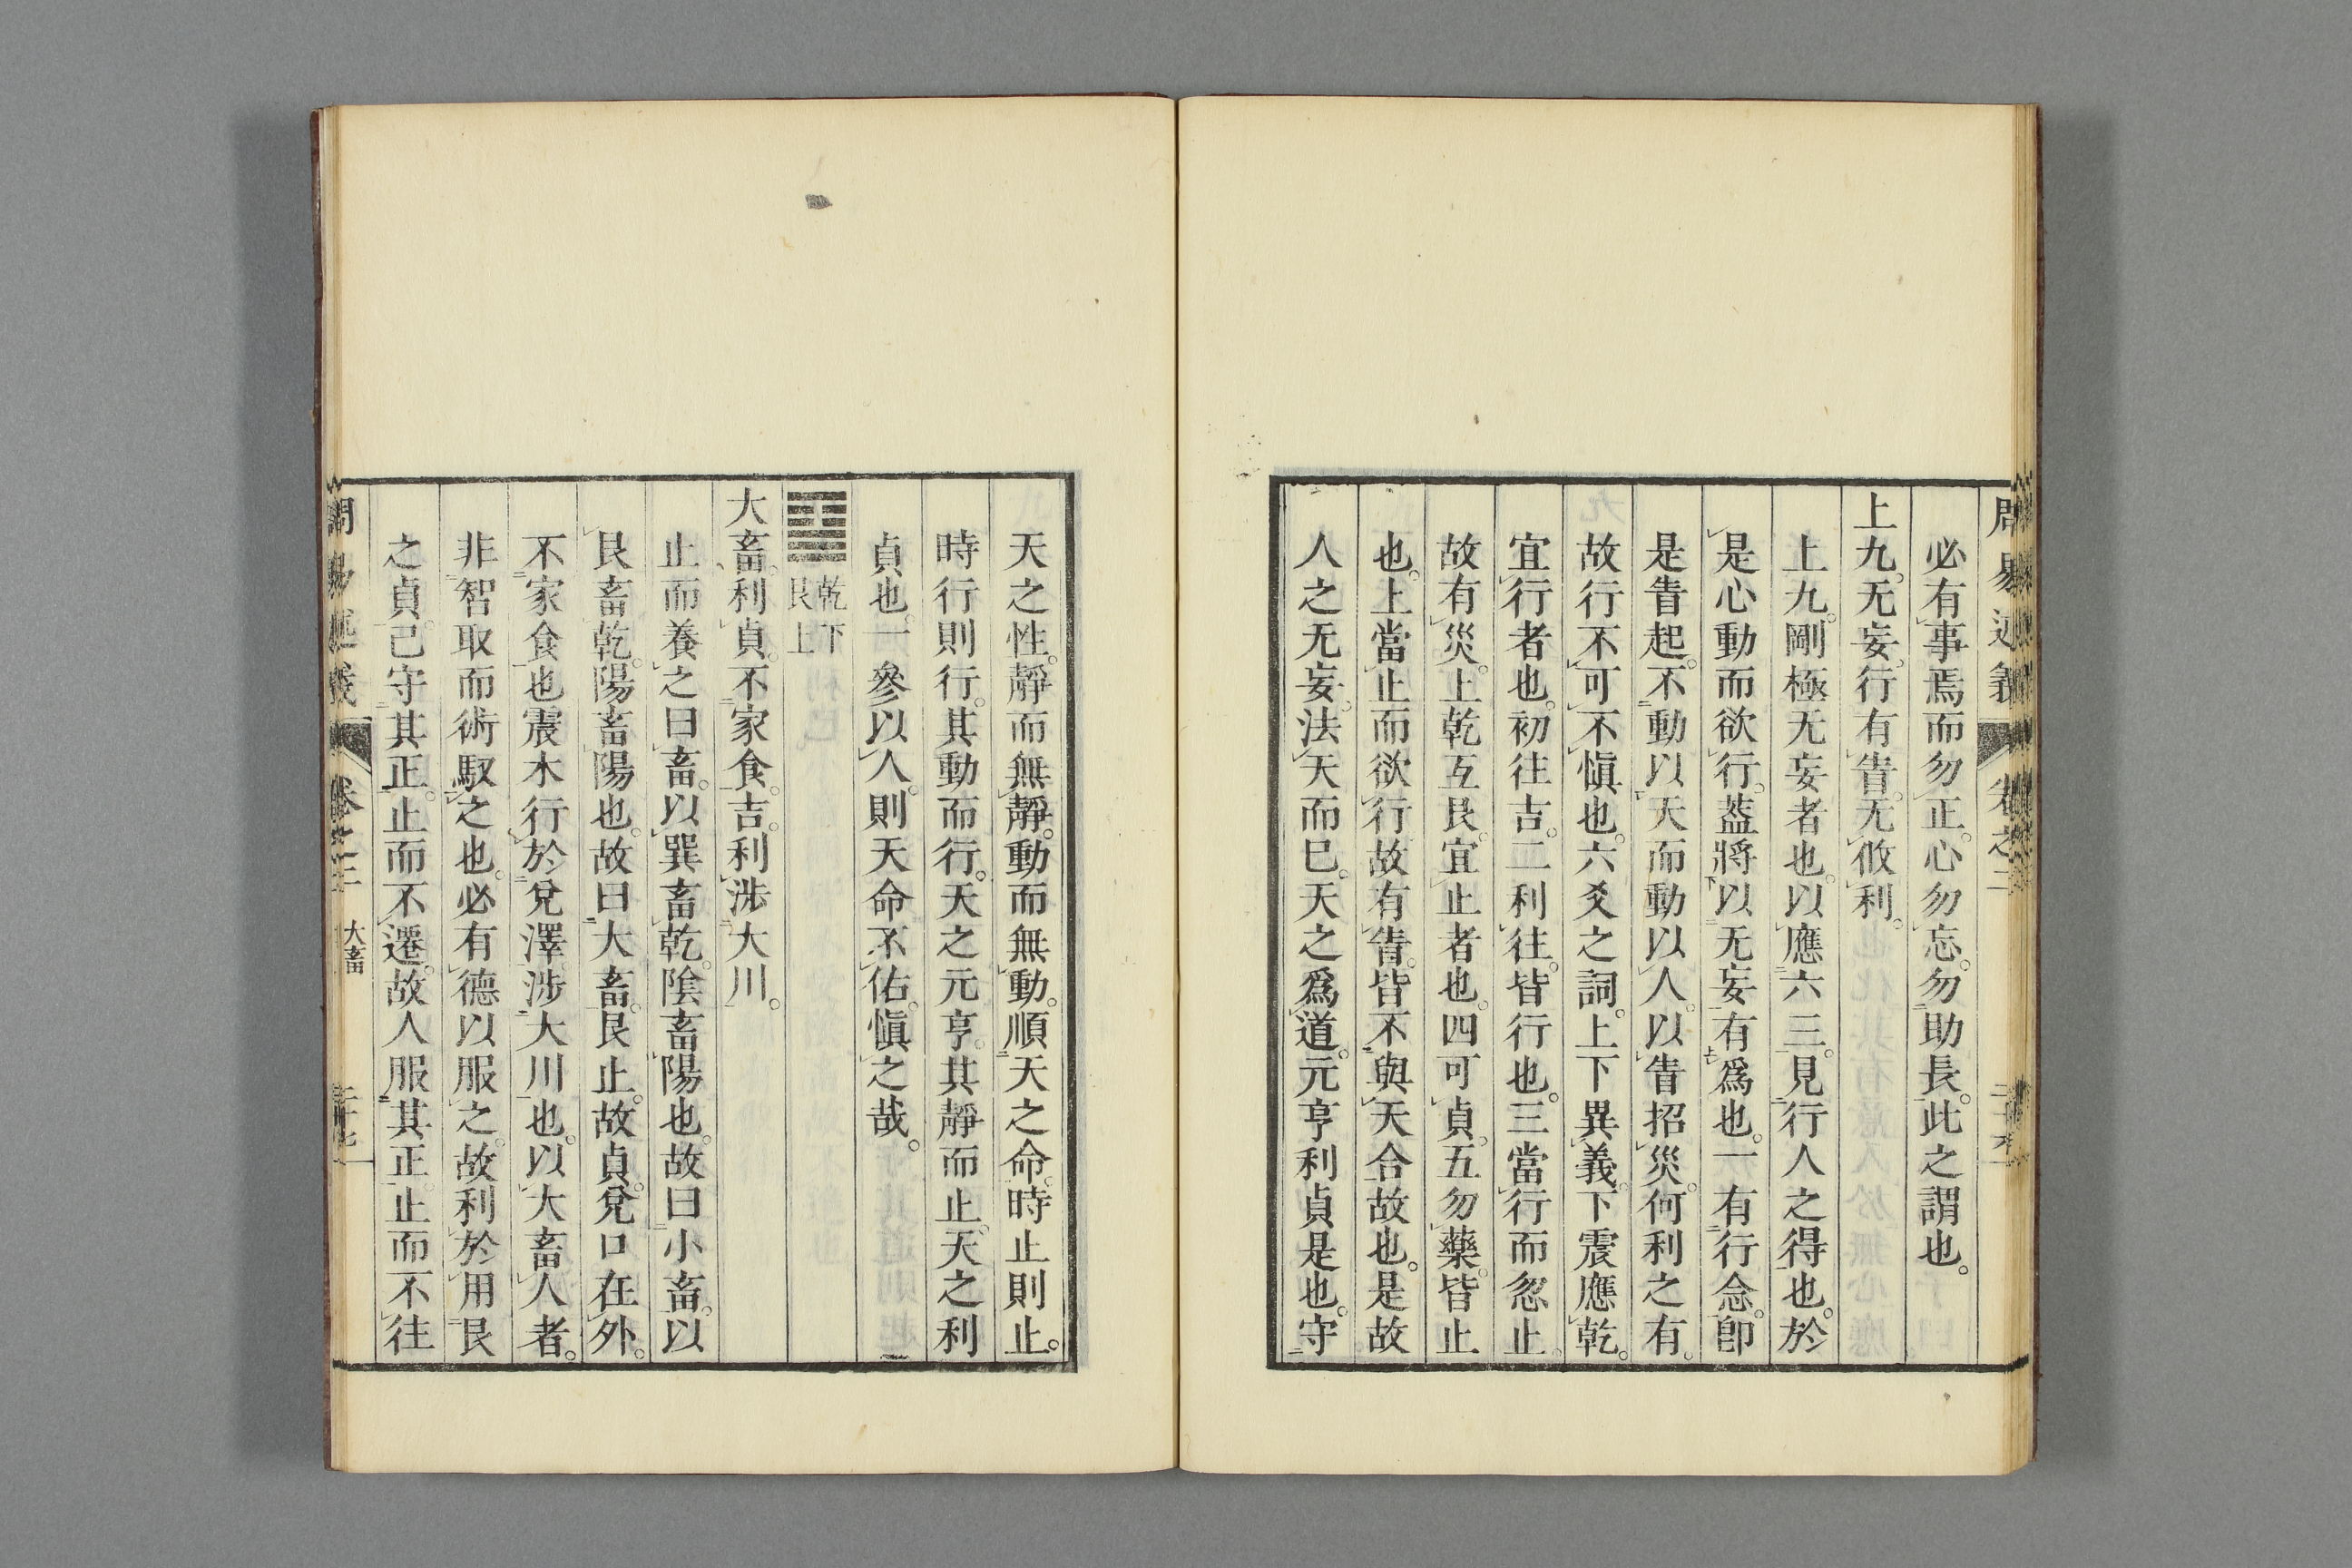 周易述義 卷之二
必有事焉而勿正。心勿忘。勿助長。此之謂也。
上九。无妄。行有眚。无攸利。
上九。剛極无妄者也。以應六三。見行人之得也。於
是心動而欲行。葢將以无妄有爲也。一有行念。卽
是眚起。不動以天而動以人。以眚招災。何利之有。
故行不可不愼也。六爻之詞。上下異義。下震應乾。
宜行者也。初往吉。二利往。皆行也。三當行而忽止。
故有災。上乾互艮。宜止者也。四可貞。五勿藥。皆止
也。上當止而欲行。故有眚。皆不與天合故也。是故
人之无妄。法天而已。天之爲道。元亨利貞是也。守
天之性。靜而無靜。動而無動。順天之命。時止則止。
時行則行。其動而行。天之元亨。其靜而止。天之利
貞也。一參以人。則天命不佑。愼之哉。
䷙ 乾下
艮上
大畜。利貞。不家食。吉。利涉大川。
止而養之曰畜。以巽畜乾。陰畜陽也。故曰小畜。以
艮畜乾。陽畜陽也。故曰大畜。艮止。故貞。兌口在外。
不家食也。震木行於兌澤。涉大川也。以大畜人者。
非智取而術馭之也。必有德以服之。故利於用艮
之貞。己守其正。止而不遷。故人服其正。止而不往
周易述義 卷之二 大畜 二十七